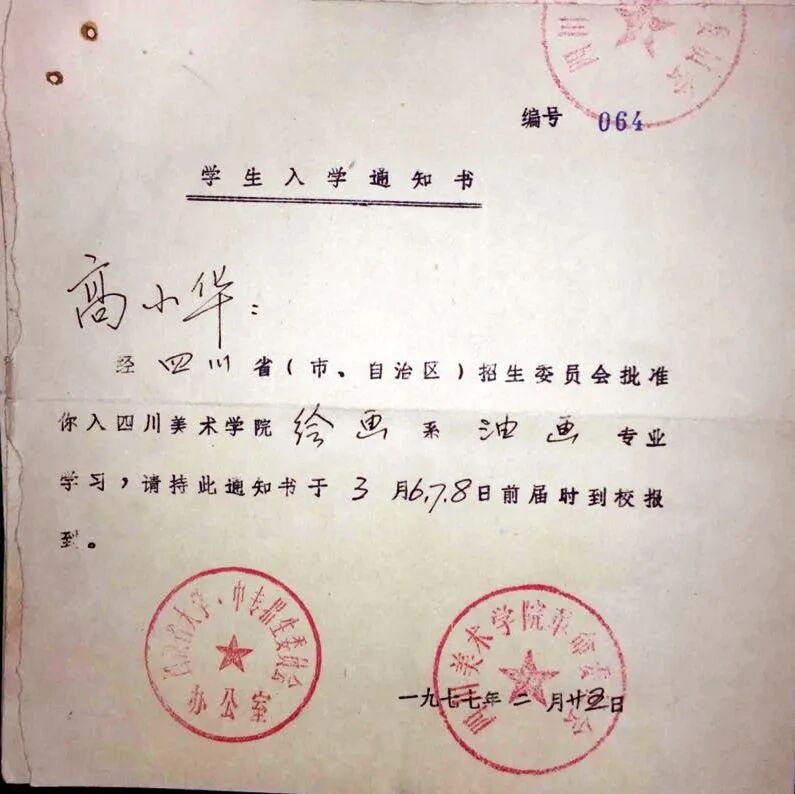 编号 064
学生入学通知书
高小华：
经四川省（市、自治区）招生委员会批准
你入四川美术学院绘画系油画专业
学习，请持此通知书于3月6,7,8日前届时到校报
到。
四川省大学、中专招生委员会
办公室
四川美术学院革命委员会
一九七七年二月廿五日